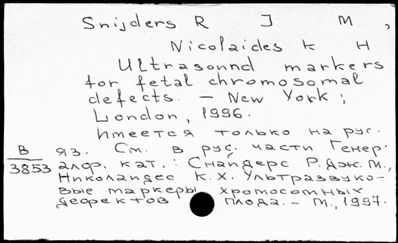 Snijders R J M,
Nicolaides K H
Ultrasound markers
for fetal chromosomal
defects. – New York;
London, 1996.
Имеется только на рус.
В
3853
яз. См. в рус. части Генер.
алф. кат.: Снайдерс Р. Дж. М.,
Николаидес К. Х. Ультразвуко-
вые маркеры хромосомных
дефектов плода. – М., 1997.